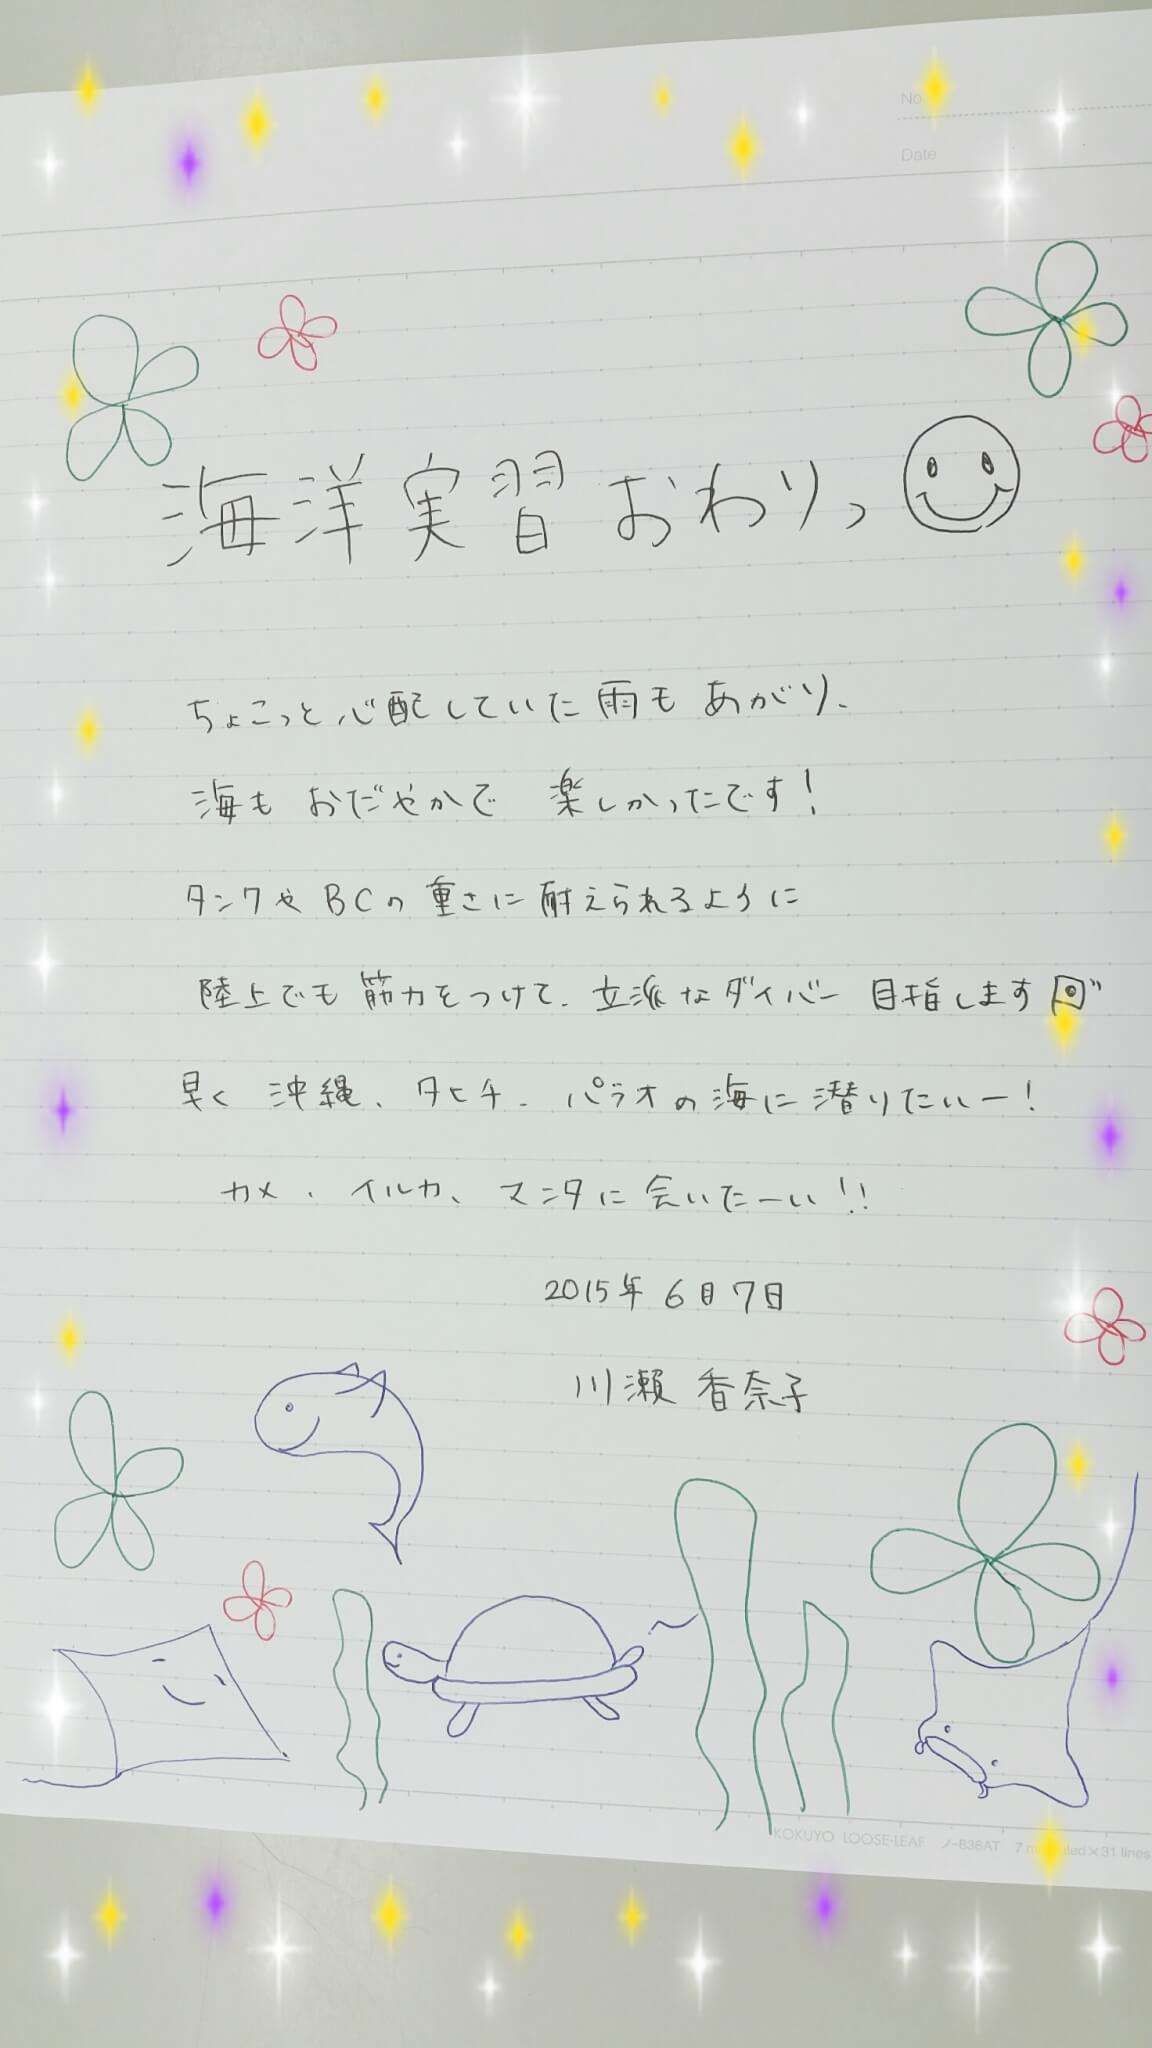 No.
Date
海洋実習おわりっ
ちょこっと心配していた雨もあがり、
海もおだやかで 楽しかったです!
タンクやBCの重さに耐えられるように
陸上でも筋力をつけて、立派なダイバー目指します
早く 沖縄、タヒチ、パラオの海に潜りたいー!
カメ、イルカ、マンタに会いたーい!!
2015年 6月7日
川瀬 香奈子
KOKUYO LOOSE-LEAF ノ-836AT 7 ruled×31 lines